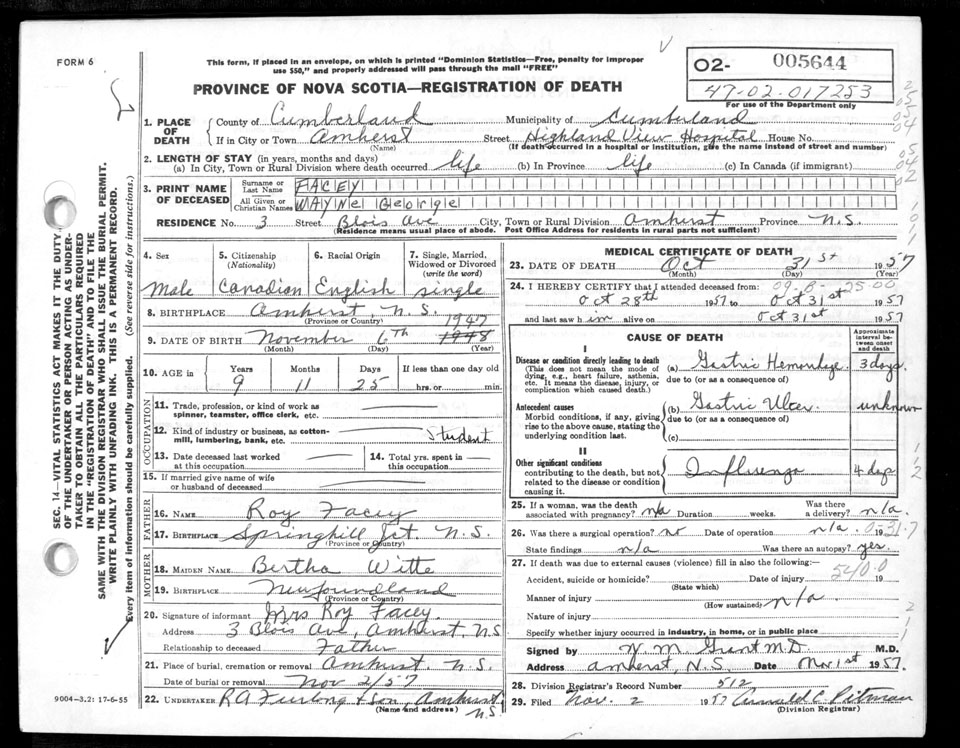 FORM 6
This form, if placed in an envelope, on which is printed "Dominion Statistics—Free, penalty for improper
use $50," and properly addressed will pass through the mail "FREE"
02- 005644
47-02-017253
For use of the Department only
PROVINCE OF NOVA SCOTIA—REGISTRATION OF DEATH
1. PLACE OF DEATH
County of Cumberland Municipality of Cumberland
If in City or Town Amherst Street Highland View Hospital House No.
(Name) (If death occurred in a hospital or institution, give the name instead of street and number)
2. LENGTH OF STAY (in years, months and days)
(a) In City, Town or Rural Division where death occurred life (b) In Province life (c) In Canada (if immigrant)
3. PRINT NAME OF DECEASED
Surname or Last Name FACEY
All Given or Christian Names WAYNE George
RESIDENCE No. 3 Street Blois Ave City, Town or Rural Division Amherst Province N.S.
(Residence means usual place of abode. Post Office Address for residents in rural parts not sufficient)
4. Sex
Male
5. Citizenship (Nationality)
Canadian
6. Racial Origin
English
7. Single, Married, Widowed or Divorced (write the word)
single
8. BIRTHPLACE Amherst, N.S.
(Province or Country)
1947
9. DATE OF BIRTH November 6th 1948
(Month) (Day) (Year)
10. AGE in Years Months Days If less than one day old
9 11 25 hrs. or min.
OCCUPATION
11. Trade, profession, or kind of work as spinner, teamster, office clerk, etc.
12. Kind of industry or business, as cotton-mill, lumbering, bank, etc. Student
13. Date deceased last worked at this occupation
14. Total yrs. spent in this occupation
15. If married give name of wife or husband of deceased
FATHER
16. NAME Roy Facey
17. BIRTHPLACE Springhill Jct. N.S.
(Province or Country)
MOTHER
18. MAIDEN NAME Bertha Witte
19. BIRTHPLACE Newfoundland
(Province or Country)
20. Signature of informant Mrs Roy Facey
Address 3 Blois Ave, Amherst, N.S
Relationship to deceased Father
21. Place of burial, cremation or removal Amherst. N.S.
Date of burial or removal Nov 2/57
22. UNDERTAKER R A Furlong & Son, Amherst, N.S
(Name and address)
MEDICAL CERTIFICATE OF DEATH
23. DATE OF DEATH Oct 31st 1957
(Month) (Day) (Year)
24. I HEREBY CERTIFY that I attended deceased from:
Oct 28th 1957 to Oct 31st 1957
and last saw him alive on Oct 31st 1957
CAUSE OF DEATH
Approximate interval between onset and death
I
Disease or condition directly leading to death
(This does not mean the mode of dying, e.g., heart failure, asthenia, etc. It means the disease, injury, or complication which caused death.)
(a) Gastric Hemorrhage 3 days
due to (or as a consequence of)
Antecedent causes
Morbid conditions, if any, giving rise to the above cause, stating the underlying condition last.
(b) Gastric Ulcer. unknown
due to (or as a consequence of)
(c)
II
Other significant conditions
contributing to the death, but not related to the disease or condition causing it.
Influenza 4 days
25. If a woman, was the death associated with pregnancy? n/a Duration weeks. Was there a delivery? n/a.
26. Was there a surgical operation? no Date of operation n/a. 19
State findings n/a Was there an autopsy? yes.
27. If death was due to external causes (violence) fill in also the following:—
540.0
Accident, suicide or homicide? Date of injury 19
(State which)
Manner of injury n/a
(How sustained)
Nature of injury
Specify whether injury occurred in industry, in home, or in public place
Signed by W. M. Grant M.D. M.D.
Address Amherst, N.S. Date Nov 1st 1957.
28. Division Registrar's Record Number 512
29. Filed Nov. 2 1957 Arnold E Pitman
(Division Registrar)
9004—3.2: 17-6-55
SEC. 14—VITAL STATISTICS ACT MAKES IT THE DUTY
OF THE UNDERTAKER OR PERSON ACTING AS UNDER-
TAKER TO OBTAIN ALL THE PARTICULARS REQUIRED
IN THE "REGISTRATION OF DEATH" AND TO FILE THE
SAME WITH THE DIVISION REGISTRAR WHO SHALL ISSUE THE BURIAL PERMIT.
WRITE PLAINLY WITH UNFADING INK. THIS IS A PERMANENT RECORD.
Every item of information should be carefully supplied. (See reverse side for instructions.)